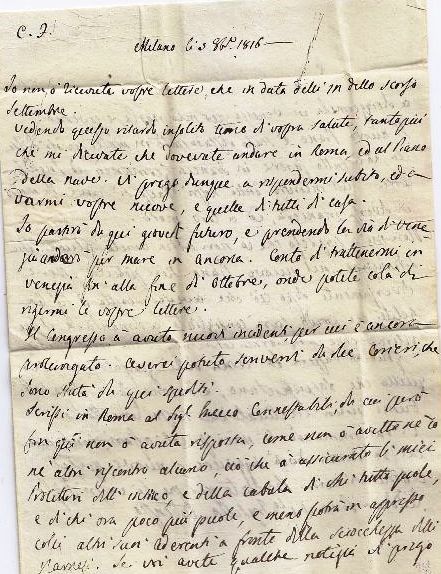 C. F.
Milano li 3 8bre. 1816 —
Io non ò ricevute vostre lettere, che in data delli 17 dello scorso
Settembre.
Vedendo questo ritardo insolito temo di vostra salute, tanto più
che mi dicevate che dovevate andare in Roma, ed al Piano
della nave. Vi prego dunque a rispondermi subito, ed a
darmi vostre nuove, e quelle di tutti di casa.
Io partirò da qui giovedì futuro, e prendendo la via di Vene
zia anderò per mare in Ancona. Conto di trattenermi in
Venezia fin' alla fine di Ottobre, onde potete colà di
rigermi le vostre lettere.
Il Congresso à avuto nuovi incidenti per cui è ancora
prolungato. Ci avrei potuto scrivervi di due Corrieri, che
sono stati di qui spediti.
Scrissi in Roma al Sigr. Connestabili da cui però
fin qui non ò avuta risposta, come non ò avuto nè
nè altri riscontro alcuno, ciò che à assicurato li miei
Protettori dell' intrico, e della cabala di chi tutto puole,
e di chi ora poco più puole, e meno potrà in appresso
colli altri suoi aderenti a fronte della sciocchezza delli
Se voi avete qualche notizia vi prego